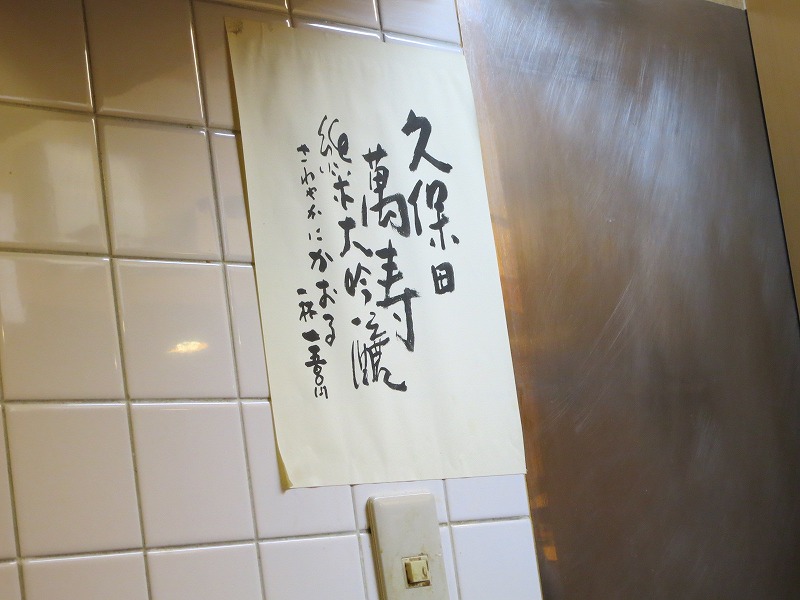 久保田
萬寿
純米大吟醸
さわやかにかおる
一杯 一五〇〇円